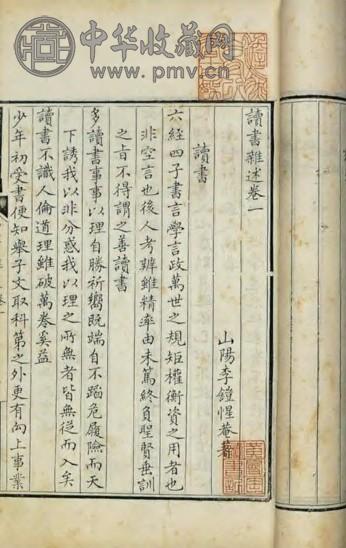 中华收藏网
www.pmv.cn
讀書雜述卷一
山陽李鎧惺菴著
讀書
六經四子書言學言政萬世之規矩權衡資之用者也
非空言也後人考辨雖精率由未篤終負聖賢垂訓
之旨不得謂之善讀書
多讀書事事以理自勝祈嚮既端自不蹈危履險而天
下誘我以非分惑我以理之所無者皆無從而入矣
讀書不識人倫道理雖破萬卷奚益
少年初受書便知舉子文取科第之外更有向上事業